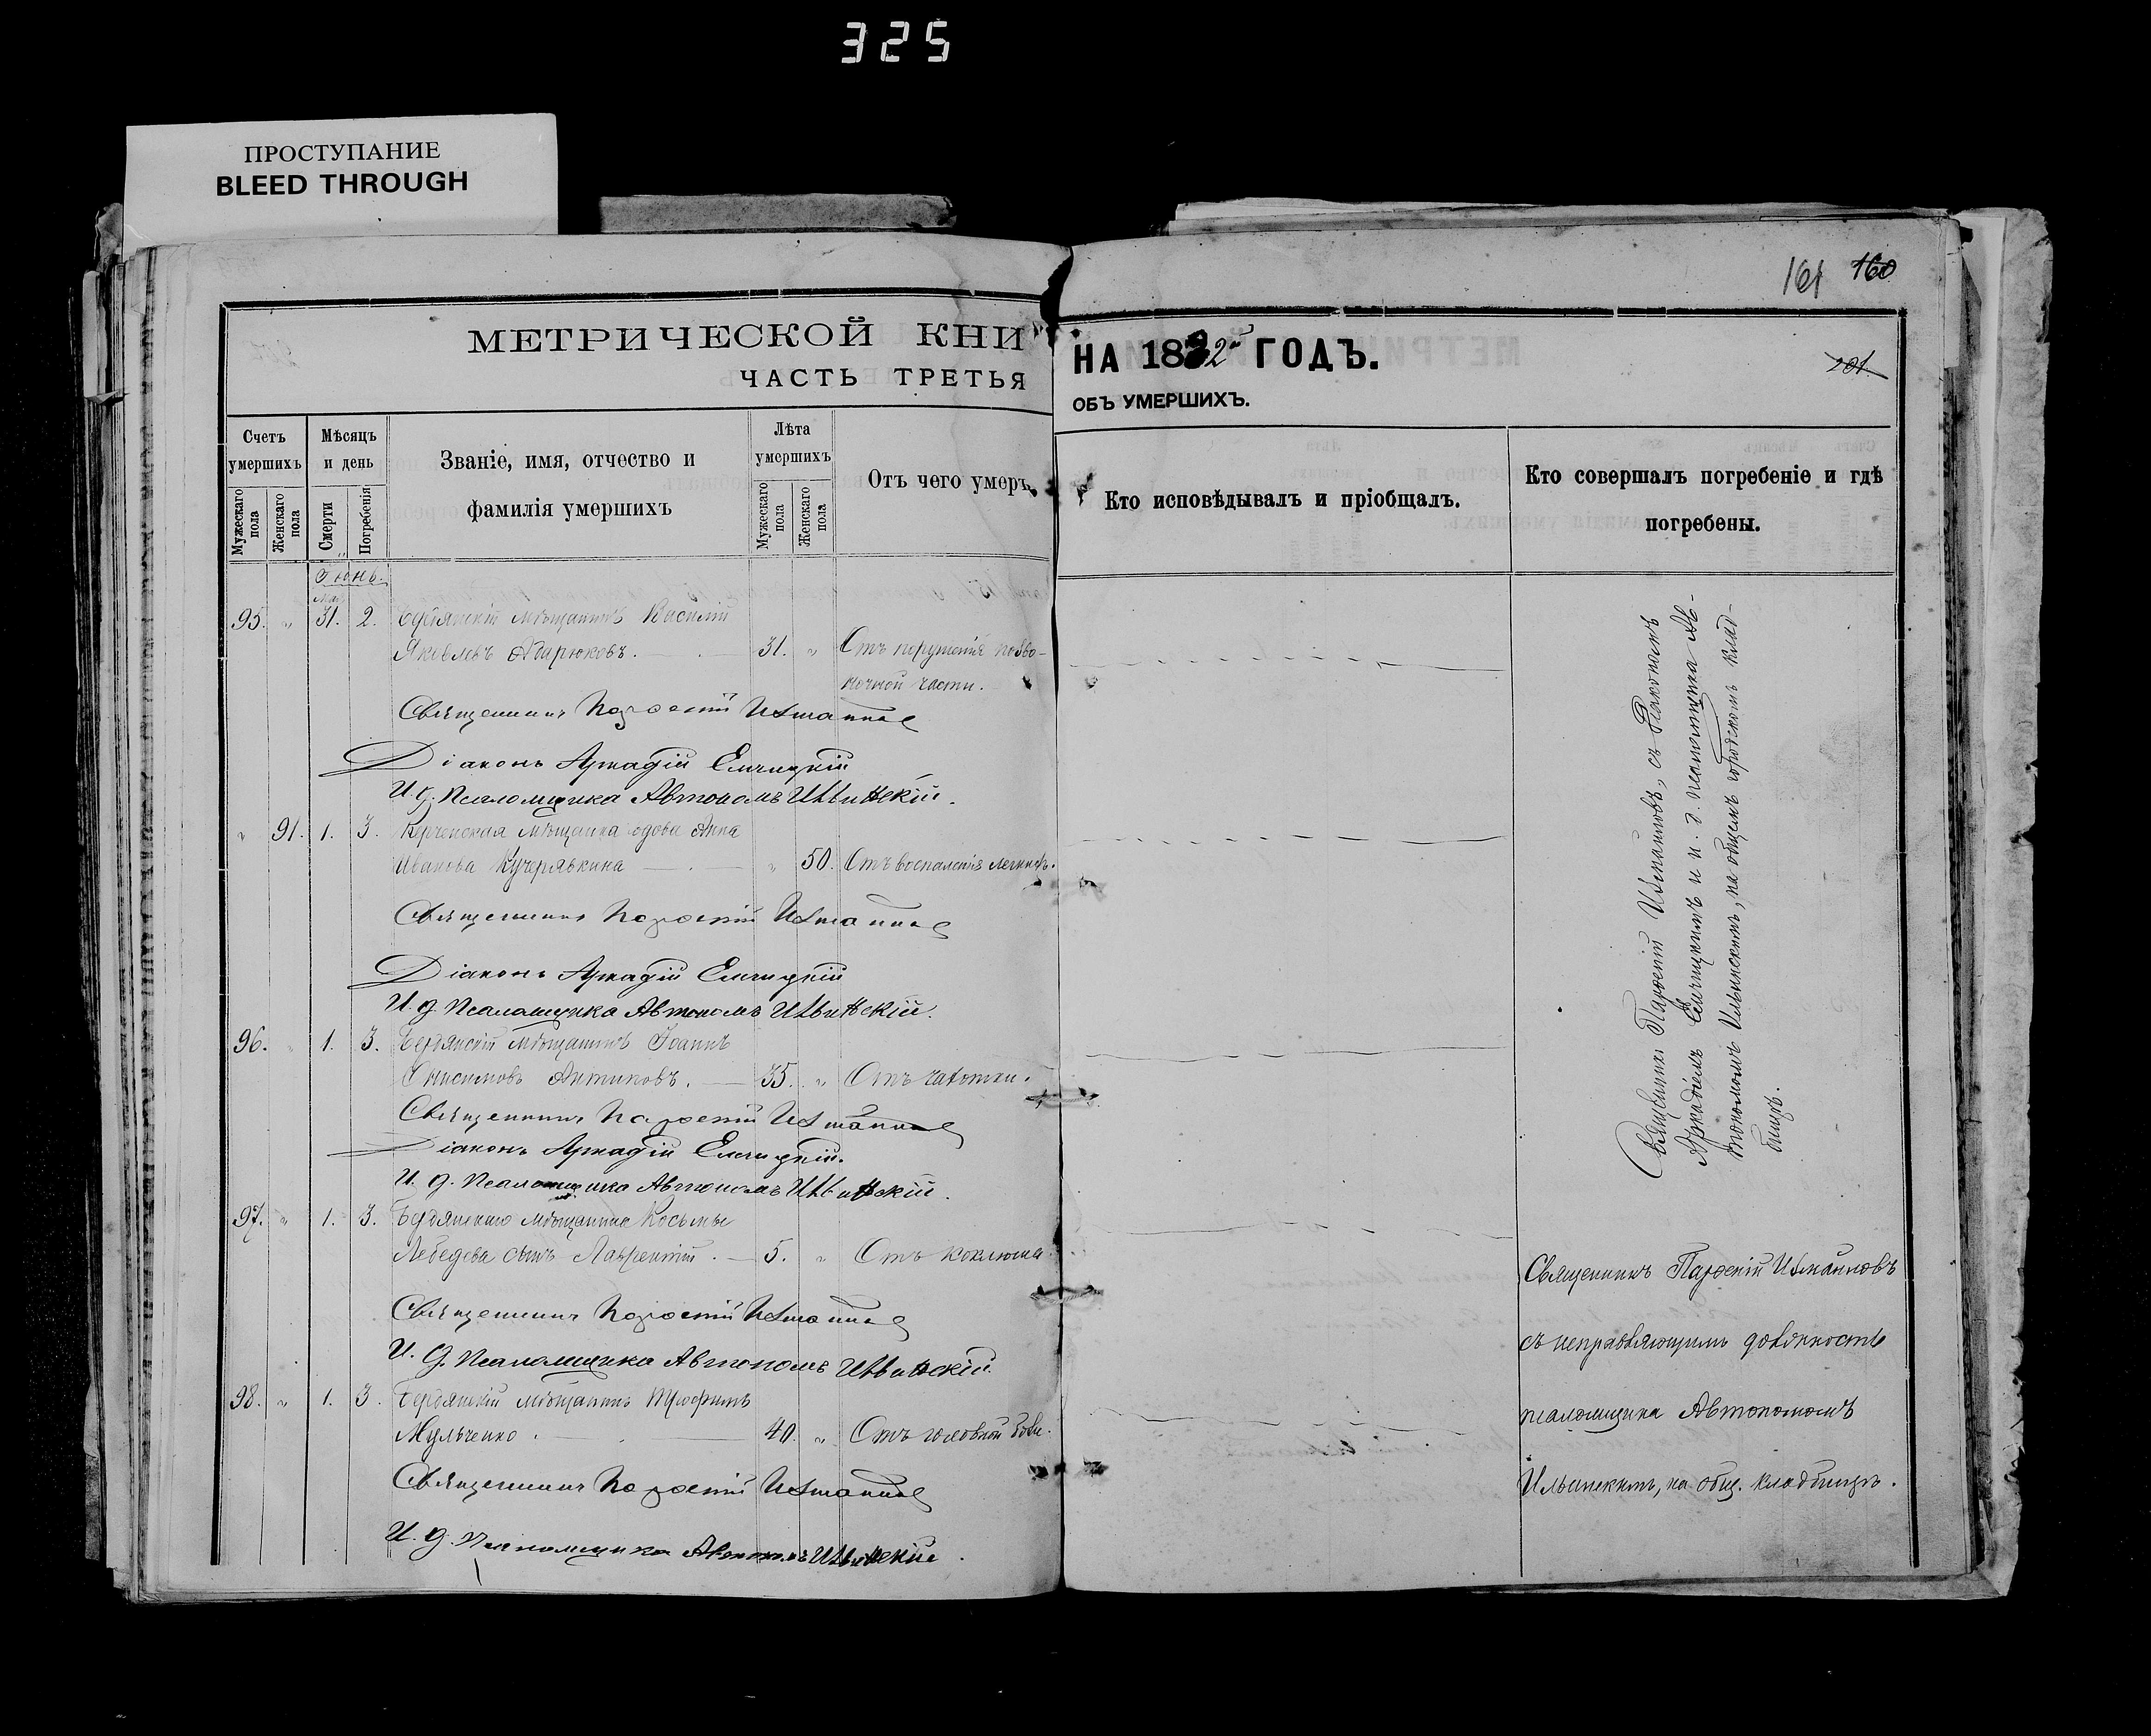 325
ПРОСТУПАНИЕ
BLEED THROUGH
161 160
МЕТРИЧЕСКОЙ КНИ
НА 1882 ГОДЪ.
201
ЧАСТЬ ТРЕТЬЯ
ОБЪ УМЕРШИХЪ.
Счетъ умершихъ
Мужескаго пола
Женскаго пола
Мѣсяцъ и день
Смерти
Погребенія
Званіе, имя, отчество и
фамилія умершихъ
Лѣта умершихъ
Мужескаго пола
Женскаго пола
Отъ чего умеръ
Кто исповѣдывалъ и пріобщалъ.
Кто совершалъ погребеніе и гдѣ
погребены.
Іюнь.
Мая
95. " 31. 2. Бердянскій мѣщанинъ Василій
Яковлевъ 31. " Отъ порушенія позво-
ночной части.
Священникъ Парѳеній Измаиловъ
Діаконъ Аркадій Елчицкій
И. д. Псаломщика Автономъ Ильинскій.
" 91. 1. 3. Керченская мѣщанка вдова Анна
Иванова Кучерявкина " 50. Отъ воспаленія легкихъ.
Священникъ Парѳеній Измаиловъ
Діаконъ Аркадій Елчицкій
И. д. Псаломщика Автономъ Ильинскій.
96. " 1. 3. Бердянскій мѣщанинъ Іоаннъ
Онисимовъ Антиповъ. 35. " Отъ чахотки.
Священникъ Парѳеній Измаиловъ
Діаконъ Аркадій Елчицкій.
И. д. Псаломщика Автономъ Ильинскій.
97. " 1. 3. Бердянскаго мѣщанина Косьмы
Лебедева сынъ Лаврентій. 5. " Отъ коклюша.
Священникъ Парѳеній Измаиловъ
И. д. Псаломщика Автономъ Ильинскій.
98. " 1. 3. Бердянскій мѣщанинъ Трофимъ
Мульченко. 40. " Отъ головной боли.
Священникъ Парѳеній Измаиловъ
И. д. Псаломщика Автономъ Ильинскій.
Священникъ Парѳеній Измаиловъ, съ Діакономъ
Аркадіемъ Елчицкимъ и и. д. псаломщика Ав-
тономомъ Ильинскимъ, на общемъ городскомъ клад-
бищѣ.
Священникъ Парѳеній Измаиловъ
съ исправляющимъ должность
псаломщика Автономомъ
Ильинскимъ, на общ. кладбищѣ.